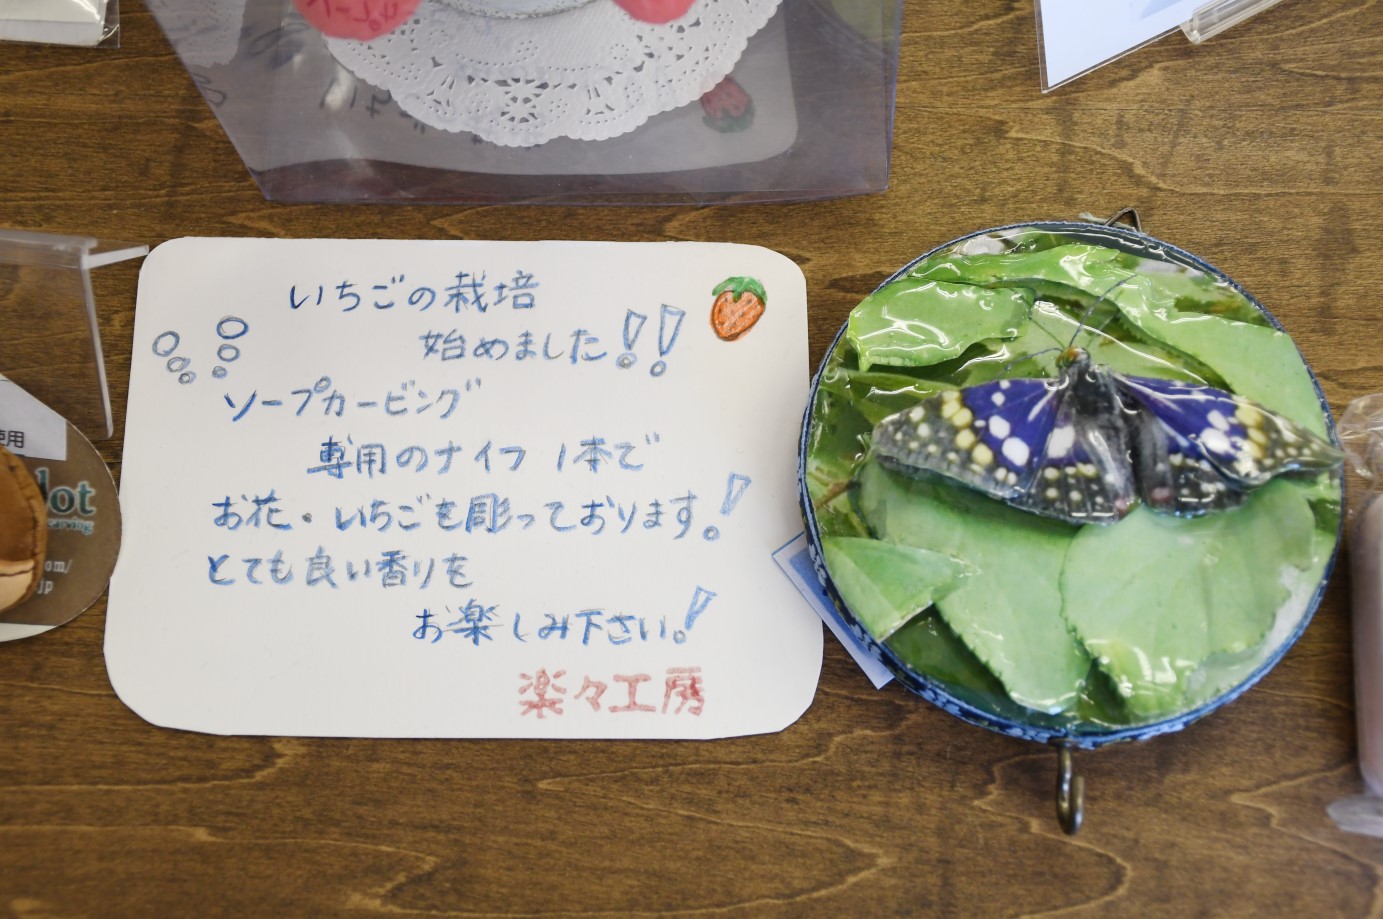 いちごの栽培
始めました!!
ソープカービング
専用のナイフ1本で
お花・いちごを彫っております。!
とても良い香りを
お楽しみ下さい。!
楽々工房
使用
lot
arving
om/
jp